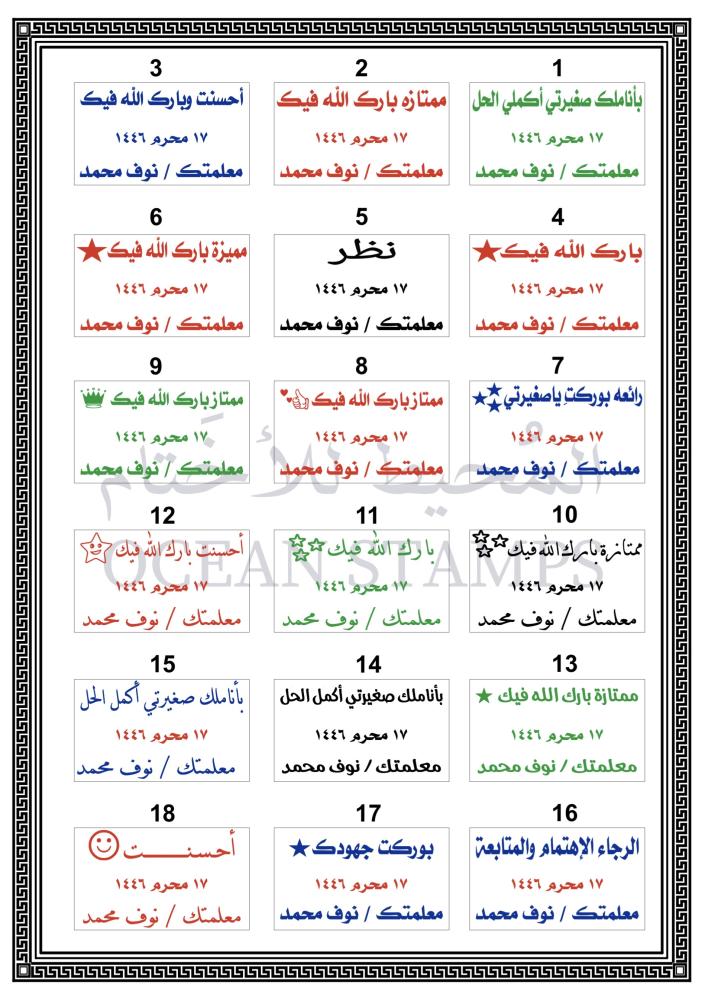 1
بأناملك صغيرتي أكملي الحل
١٧ محرم ١٤٤٦
معلمتك / نوف محمد
2
ممتازه بارك الله فيك
١٧ محرم ١٤٤٦
معلمتك / نوف محمد
3
أحسنت وبارك الله فيك
١٧ محرم ١٤٤٦
معلمتك / نوف محمد
4
بارك الله فيك
١٧ محرم ١٤٤٦
معلمتك / نوف محمد
5
نظر
١٧ محرم ١٤٤٦
معلمتك / نوف محمد
6
مميزة بارك الله فيك
١٧ محرم ١٤٤٦
معلمتك / نوف محمد
7
رائعه بوركتِ ياصغيرتي
١٧ محرم ١٤٤٦
معلمتك / نوف محمد
8
ممتاز بارك الله فيك
١٧ محرم ١٤٤٦
معلمتك / نوف محمد
9
ممتاز بارك الله فيك
١٧ محرم ١٤٤٦
معلمتك / نوف محمد
المُحيط للأختَام
OCEAN STAMPS
10
ممتازة بارك الله فيك
١٧ محرم ١٤٤٦
معلمتك / نوف محمد
11
بارك الله فيك
١٧ محرم ١٤٤٦
معلمتك / نوف محمد
12
أحسنت بارك الله فيك
١٧ محرم ١٤٤٦
معلمتك / نوف محمد
13
ممتازة بارك الله فيك
١٧ محرم ١٤٤٦
معلمتك / نوف محمد
14
بأناملك صغيرتي أكمل الحل
١٧ محرم ١٤٤٦
معلمتك / نوف محمد
15
بأناملك صغيرتي أكمل الحل
١٧ محرم ١٤٤٦
معلمتك / نوف محمد
16
الرجاء الإهتمام والمتابعة
١٧ محرم ١٤٤٦
معلمتك / نوف محمد
17
بوركت جهودك
١٧ محرم ١٤٤٦
معلمتك / نوف محمد
18
أحسنـــــت
١٧ محرم ١٤٤٦
معلمتك / نوف محمد